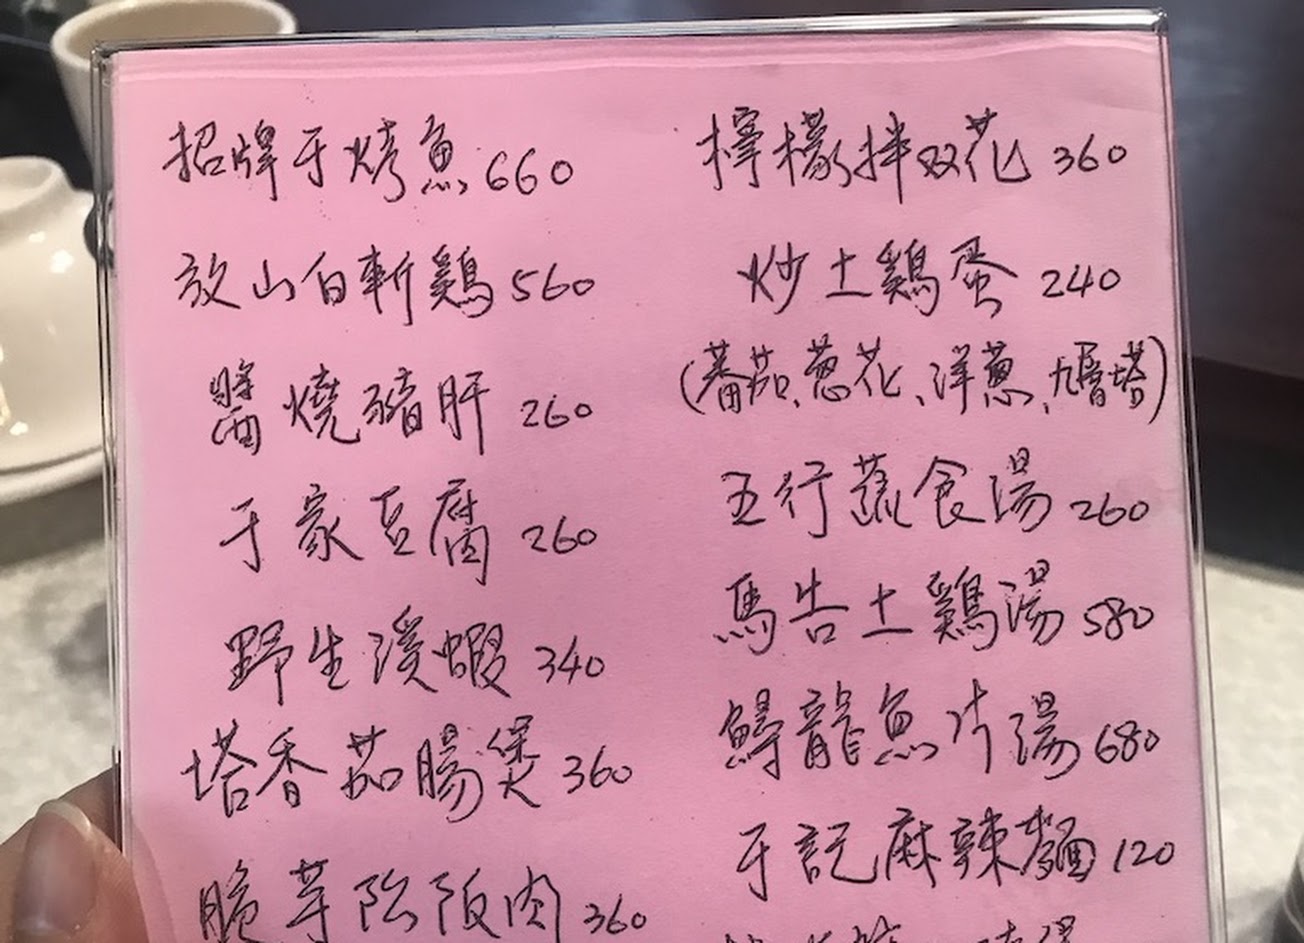 招牌于烤魚 660
放山白斬鷄 560
醬燒豬肝 260
于家豆腐 260
野生溪蝦 340
塔香茄腸煲 360
脆芋 肉 360
檸檬拌双花 360
炒土鷄蛋 240
(蕃茄、蔥花、洋蔥、九層塔)
五行蔬食湯 260
馬告土鷄湯 580
鱘龍魚片湯 680
于記麻辣麵 120